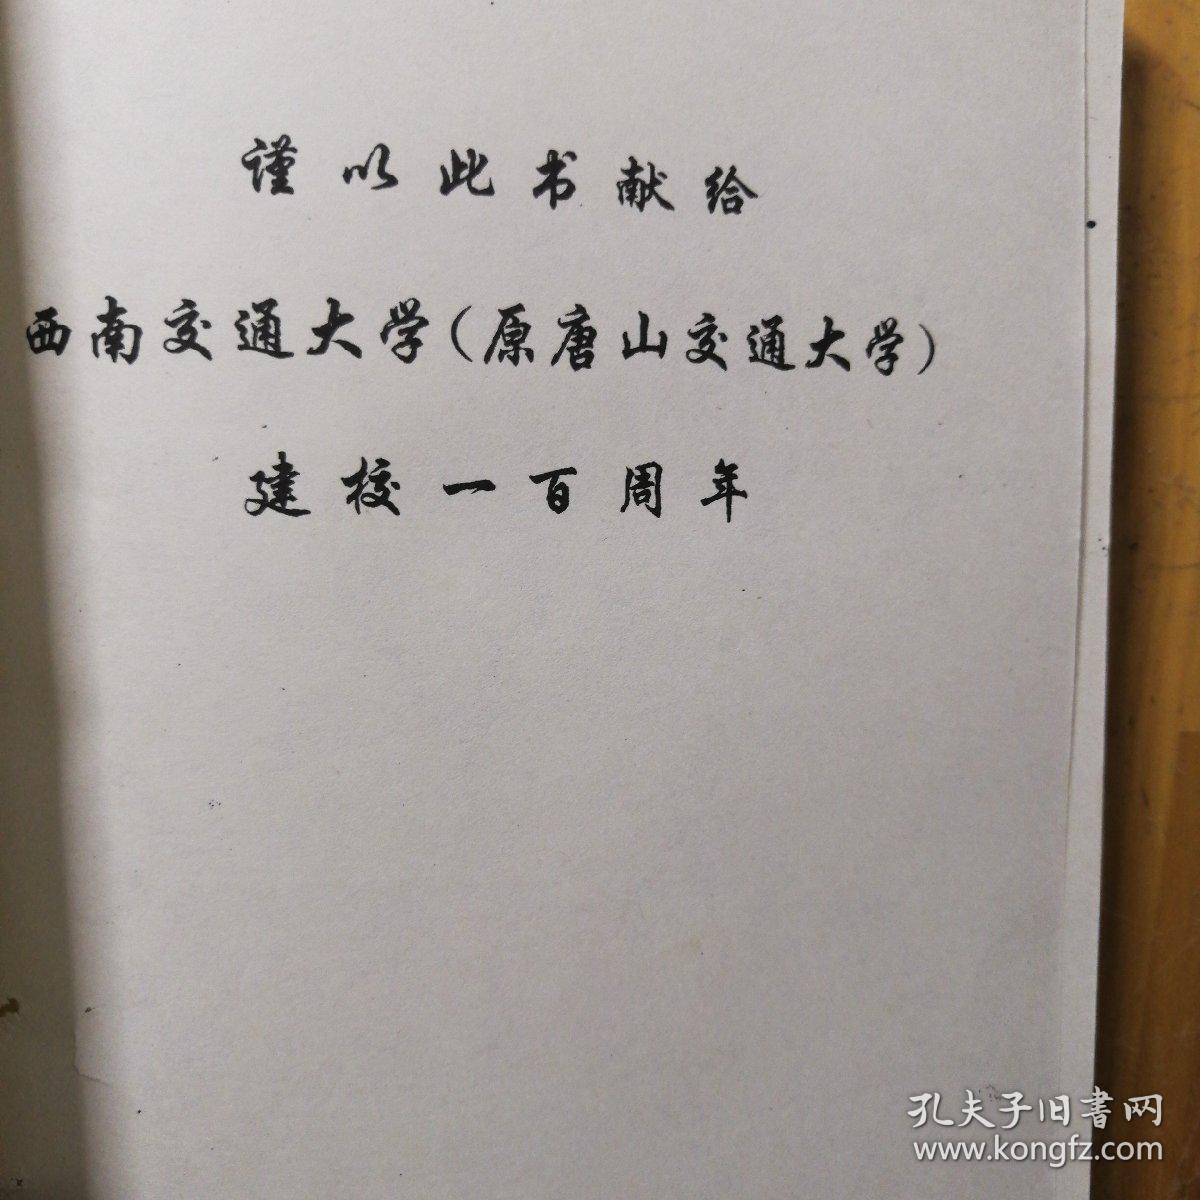 谨以此书献给
西南交通大学(原唐山交通大学)
建校一百周年
孔夫子旧書网
www.kongfz.com